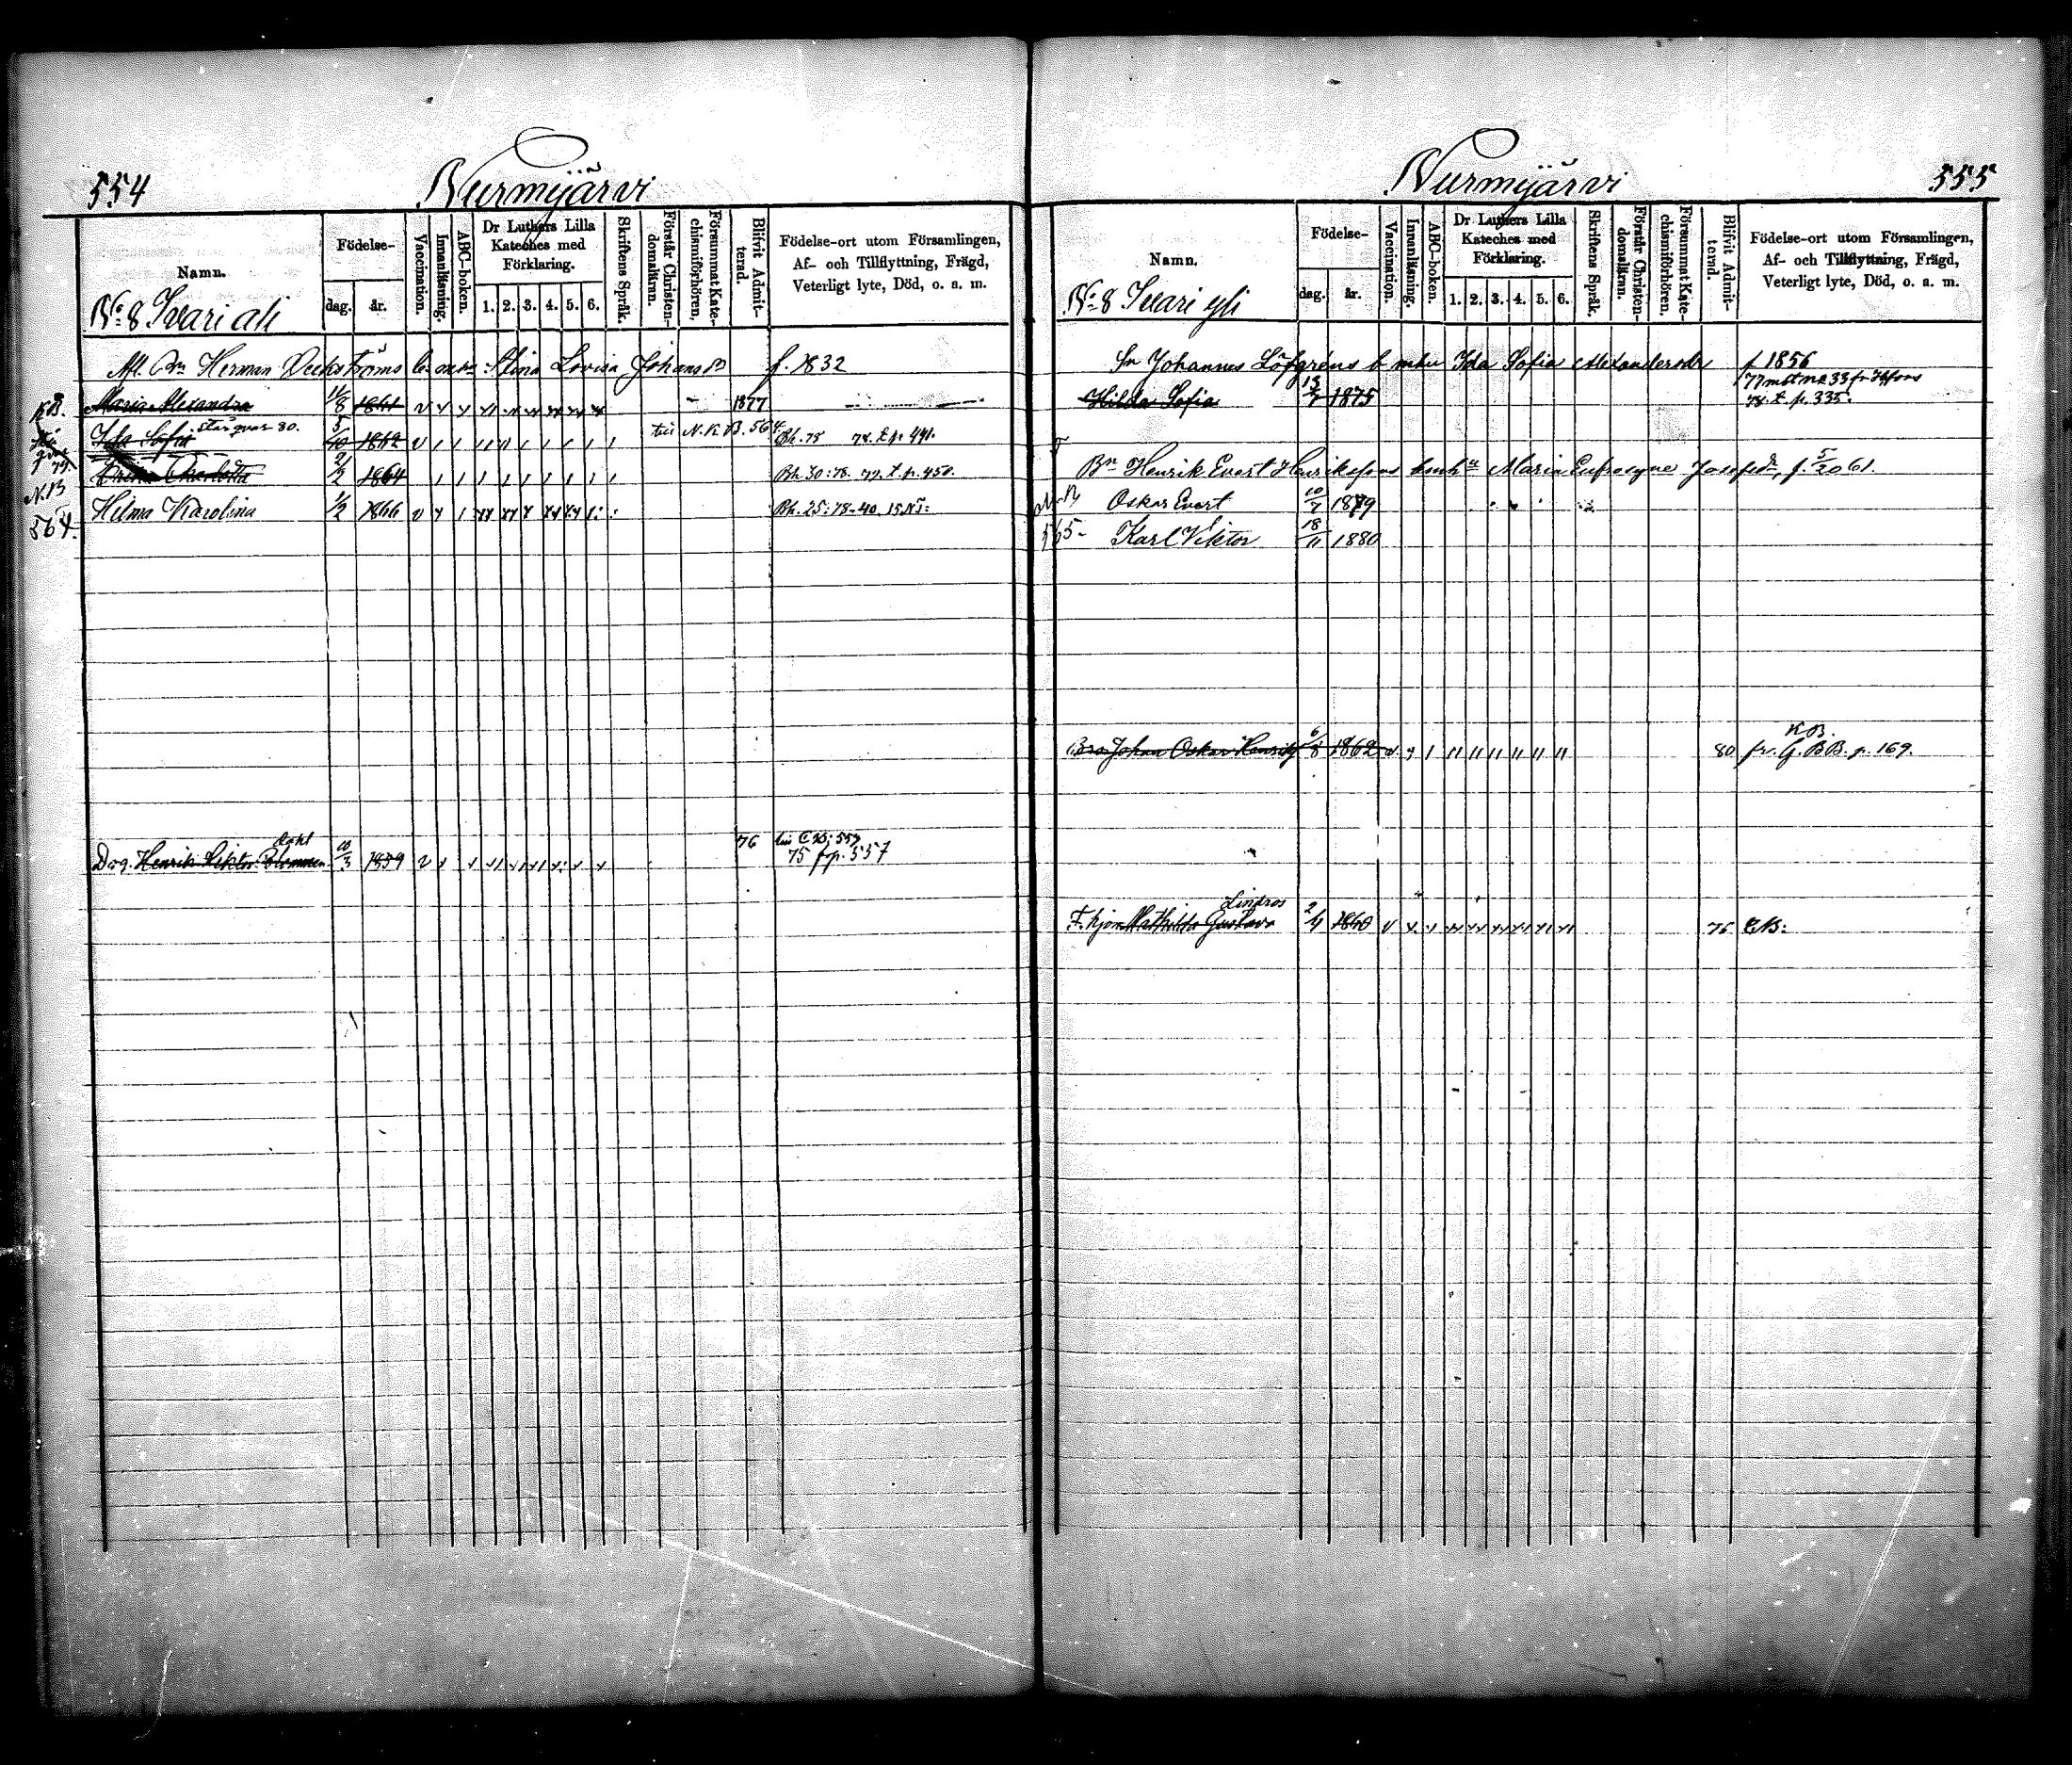 554
Nurmijärvi
Namn.
Födelse-
dag.
år.
Vaccination.
Innanläsning.
ABC-boken.
Dr Luthers Lilla
Kateches med
Förklaring.
1. 2. 3. 4. 5. 6.
Skriftens Språk.
Förstår Christen-
domsläran.
Försummat Kate-
chismiförhören.
Blifvit Admit-
terad.
Födelse-ort utom Församlingen,
Af- och Tillflyttning, Frägd,
Veterligt lyte, Död, o. a. m.
No 8 Ivari ali
Herman Stina Lovisa Johansdr f. 1832
K.B. Maria Alexandra 1/8 1861 1877
Ida Sofia står qvar 80. 5/10 1862 till N.K.B. 564. Bh. 75 78. t. p. 491.
Charlotta 2/2 1864 Bh. 30: 78. 79. t. p. 450.
N.B
564. Hilma Karolina 1/2 1866 Bh. 25: 78-40.
Dahl
Henrik Viktor 10/3 1859 76
75 fr p. 557
Nurmijärvi
555
Namn.
Födelse-
dag.
år.
Vaccination.
Innanläsning.
ABC-boken.
Dr Luthers Lilla
Kateches med
Förklaring.
1. 2. 3. 4. 5. 6.
Skriftens Språk.
Förstår Christen-
domsläran.
Försummat Kate-
chismiförhören.
Blifvit Admit-
terad.
Födelse-ort utom Församlingen,
Af- och Tillflyttning, Frägd,
Veterligt lyte, Död, o. a. m.
No 8 Ivari yli
Johannes Löfgrens Ida Sofia Alexandersdr f 1856
Hilda Sofia 13/7 1875
78. t. p. 335.
Henrik Evert Henrikssons Maria Eufrosyne Josefsdr, f. 5/20 61.
N.B Oskar Evert 10/7 1879
565- Karl Viktor 18/11 1880
K.B.
Johan Oskar 6/8 1862 80 fr. G. B.B. p. 169.
Lindros
Mathilda Gustava 2/4 1860 76